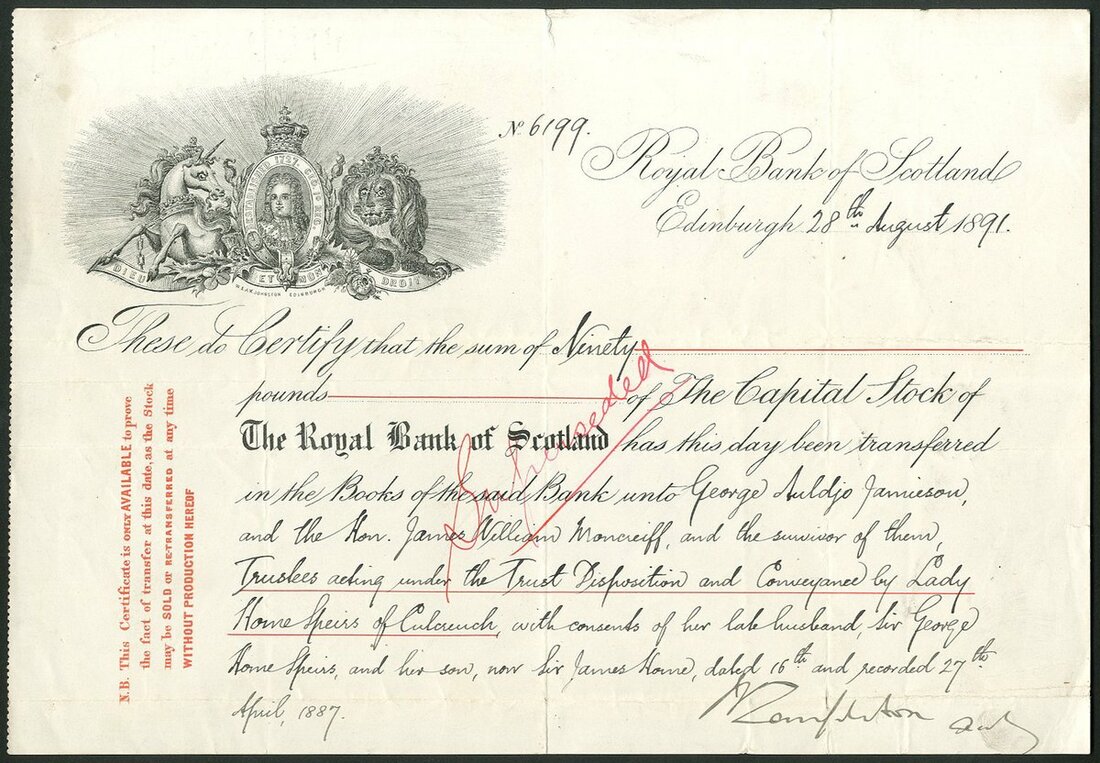 No 6199.
Royal Bank of Scotland
Edinburgh 28th August 1891.
ESTABLISHED 1727
DIEU ET MON DROIT
W. & A.K. JOHNSTON EDINBURGH
These do Certify that the sum of Ninety
pounds of The Capital Stock of
The Royal Bank of Scotland has this day been transferred
in the Books of the said Bank unto George Auldjo Jamieson,
and the Hon. James William Moncreiff, and the survivor of them,
Trustees acting under the Trust Disposition and Conveyance by Lady
Home Speirs of Culcreuch, with consents of her late husband, Sir George
Home Speirs, and her son, now Sir James Home, dated 16th and recorded 27th
April, 1887.
Superseded
N.B. This Certificate is ONLY AVAILABLE to prove
the fact of transfer at this date, as the Stock
may be SOLD or RE-TRANSFERRED at any time
WITHOUT PRODUCTION HEREOF